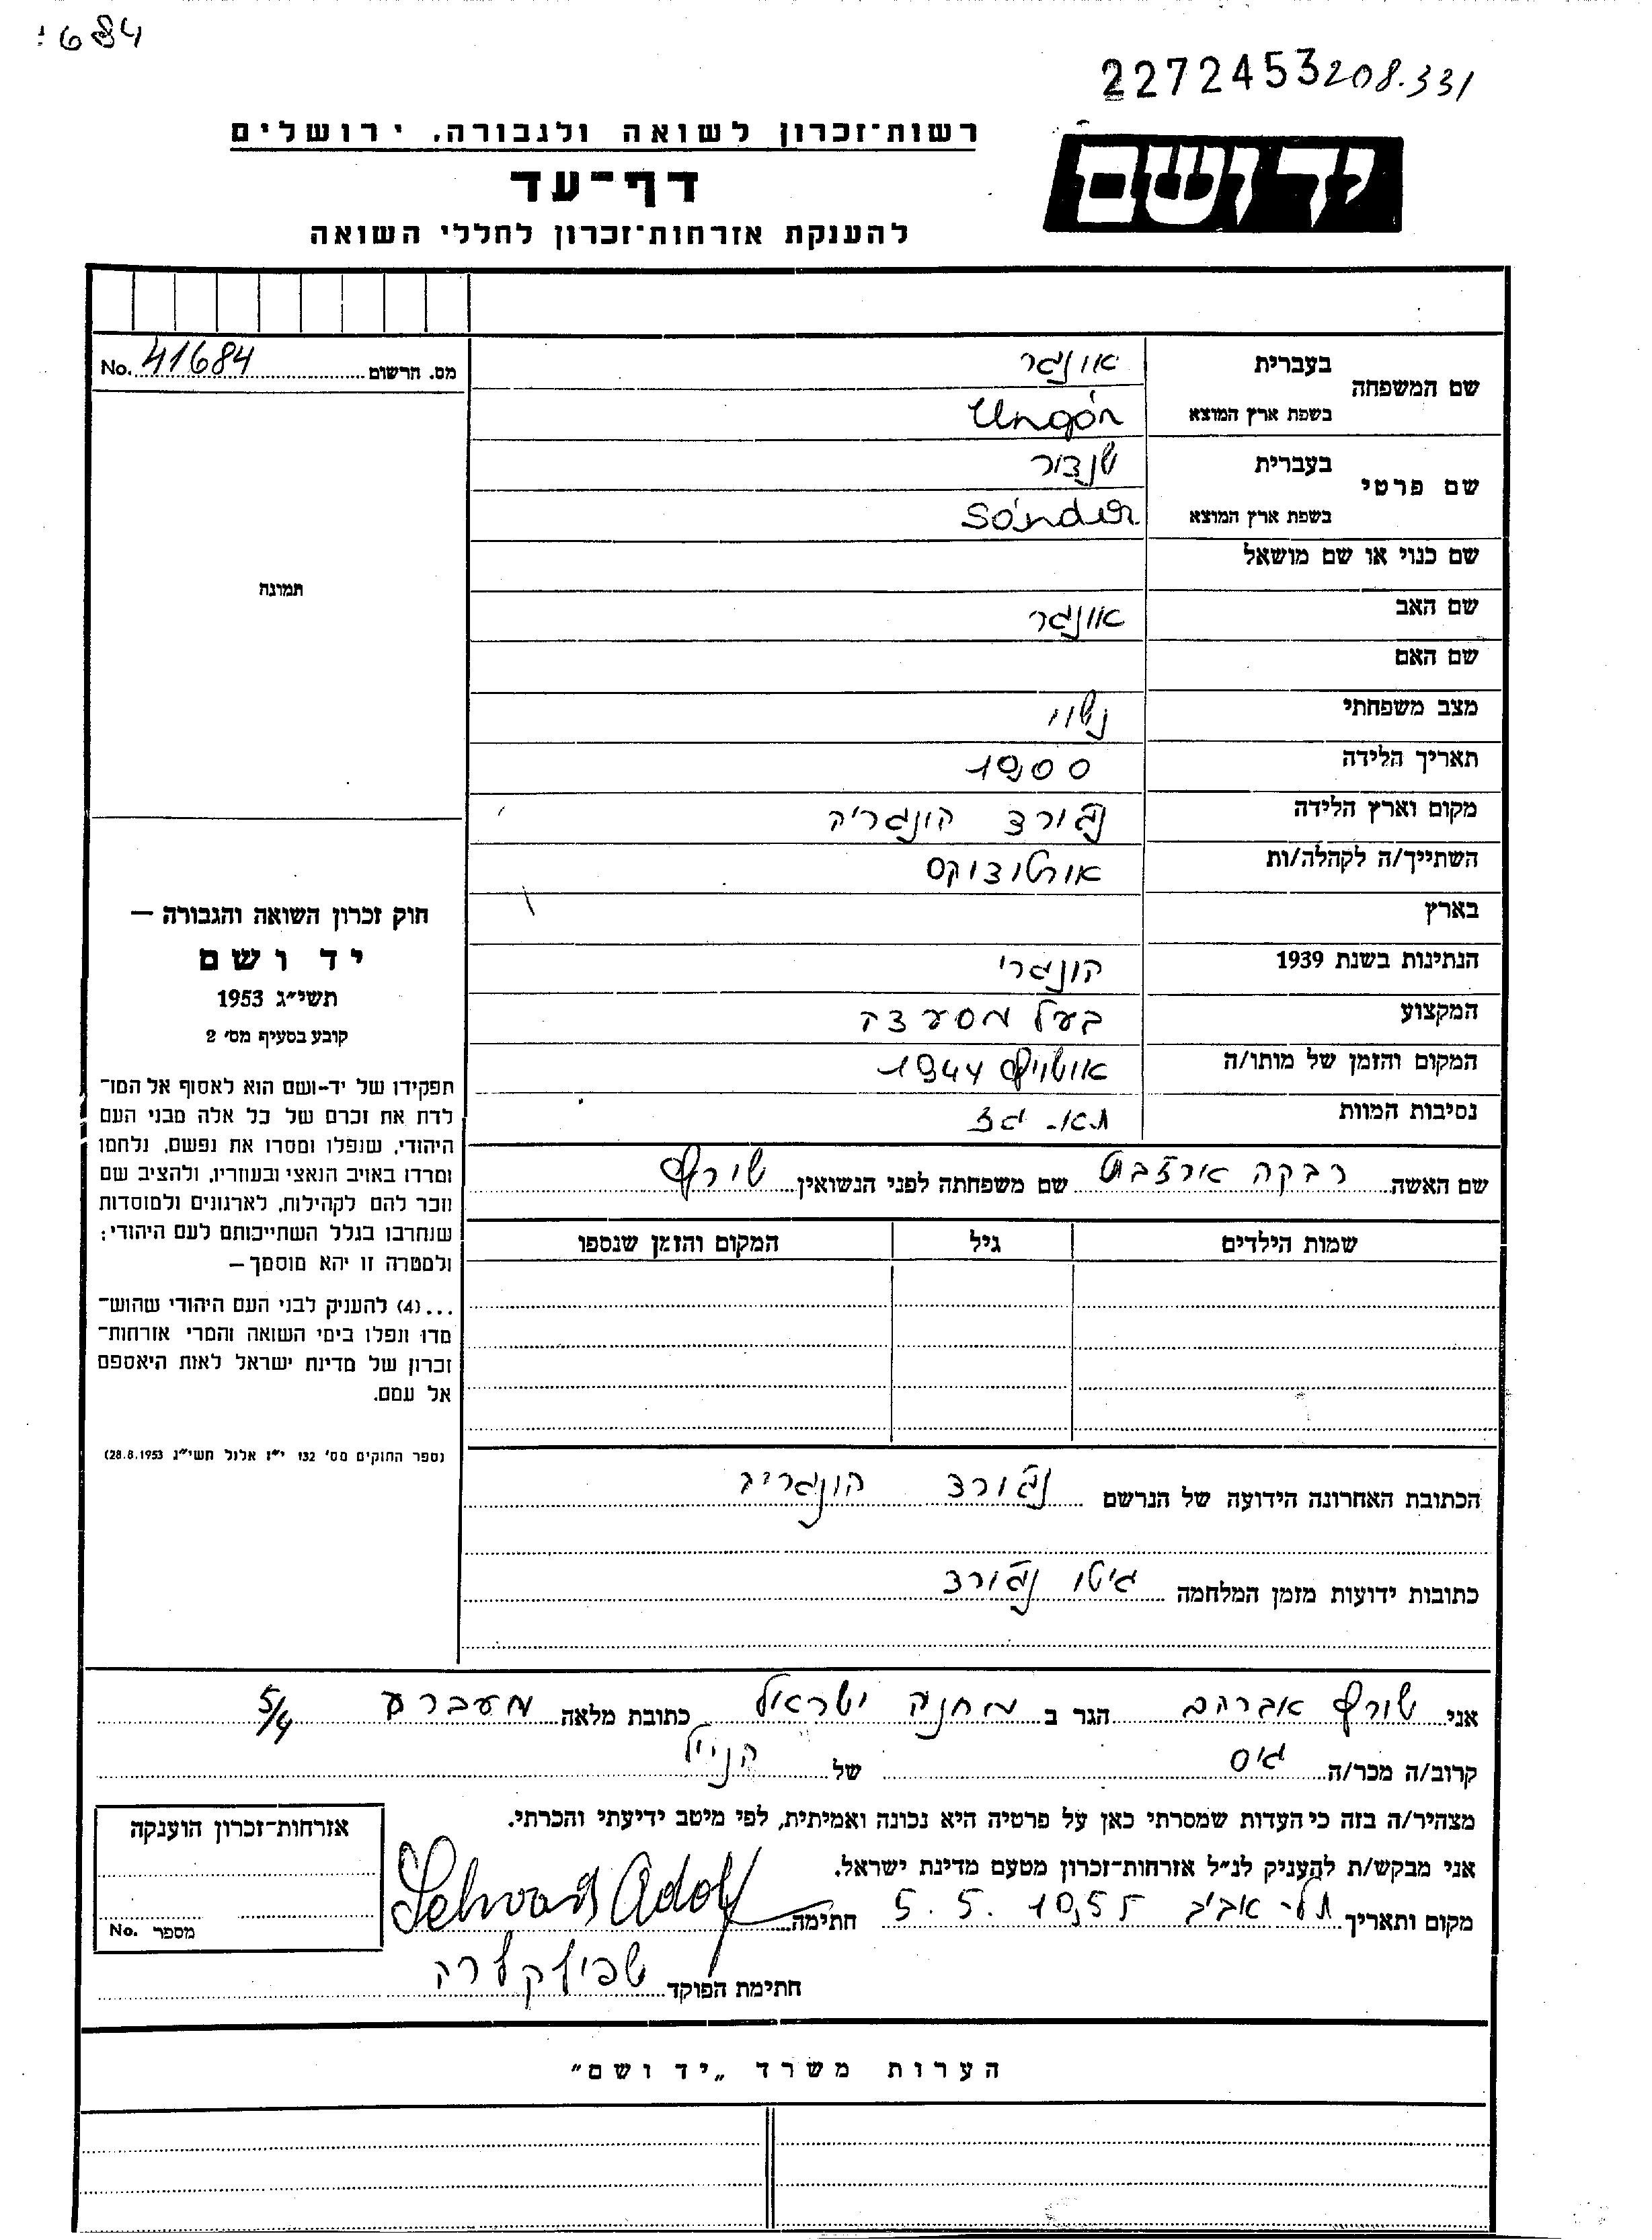 1684
2272453 208.331
רשות־זכרון לשואה ולגבורה, ירושלים
יד ושם
דף־עד
להענקת אזרחות־זכרון לחללי השואה
מס. הרשום No. 41684
שם המשפחה
בעברית אונגר
בשפת ארץ המוצא Ungár
שם פרטי
בעברית שנדור
בשפת ארץ המוצא Sándor
שם כנוי או שם מושאל
שם האב אונגר
שם האם
מצב משפחתי נשוי
תאריך הלידה 1900
מקום וארץ הלידה הונגריה
השתייך/ה לקהלה/ות אורטודוקס
בארץ
הנתינות בשנת 1939 הונגרי
המקצוע בעל מסעדה
המקום והזמן של מותו/ה 1944
נסיבות המוות תא־גז
שם האשה רבקה ארזבט שם משפחתה לפני הנשואין
שמות הילדים גיל המקום והזמן שנספו
הכתובת האחרונה הידועה של הנרשם
כתובות ידועות מזמן המלחמה גיטו
תמונה
חוק זכרון השואה והגבורה —
יד ושם
תשי״ג 1953
קובע בסעיף מס׳ 2
תפקידו של יד-ושם הוא לאסוף אל המו־
לדת את זכרם של כל אלה מבני העם
היהודי, שנפלו ומסרו את נפשם, נלחמו
ומרדו באויב הנאצי ובעוזריו, ולהציב שם
וזכר להם לקהילות, לארגונים ולמוסדות
שנחרבו בגלל השתייכותם לעם היהודי;
ולמטרה זו יהא מוסמך—
...(4) להעניק לבני העם היהודי שהוש־
מדו ונפלו בימי השואה והמרי אזרחות־
זכרון של מדינת ישראל לאות היאספם
אל עמם.
(ספר החוקים מס׳ 132 י״ז אלול תשי״ג 28.8.1953)
אני אברהם הגר ב מחנה ישראל כתובת מלאה מעברע 5/4
קרוב/ה מכר/ה גיס של הנ״ל
מצהיר/ה בזה כי העדות שמסרתי כאן על פרטיה היא נכונה ואמיתית, לפי מיטב ידיעתי והכרתי.
אני מבקש/ת להעניק לנ״ל אזרחות־זכרון מטעם מדינת ישראל.
מקום ותאריך תל-אביב 5.5.1955 חתימה Adolf
חתימת הפוקד
אזרחות־זכרון הוענקה
מספר No.
הערות משרד „יד ושם״